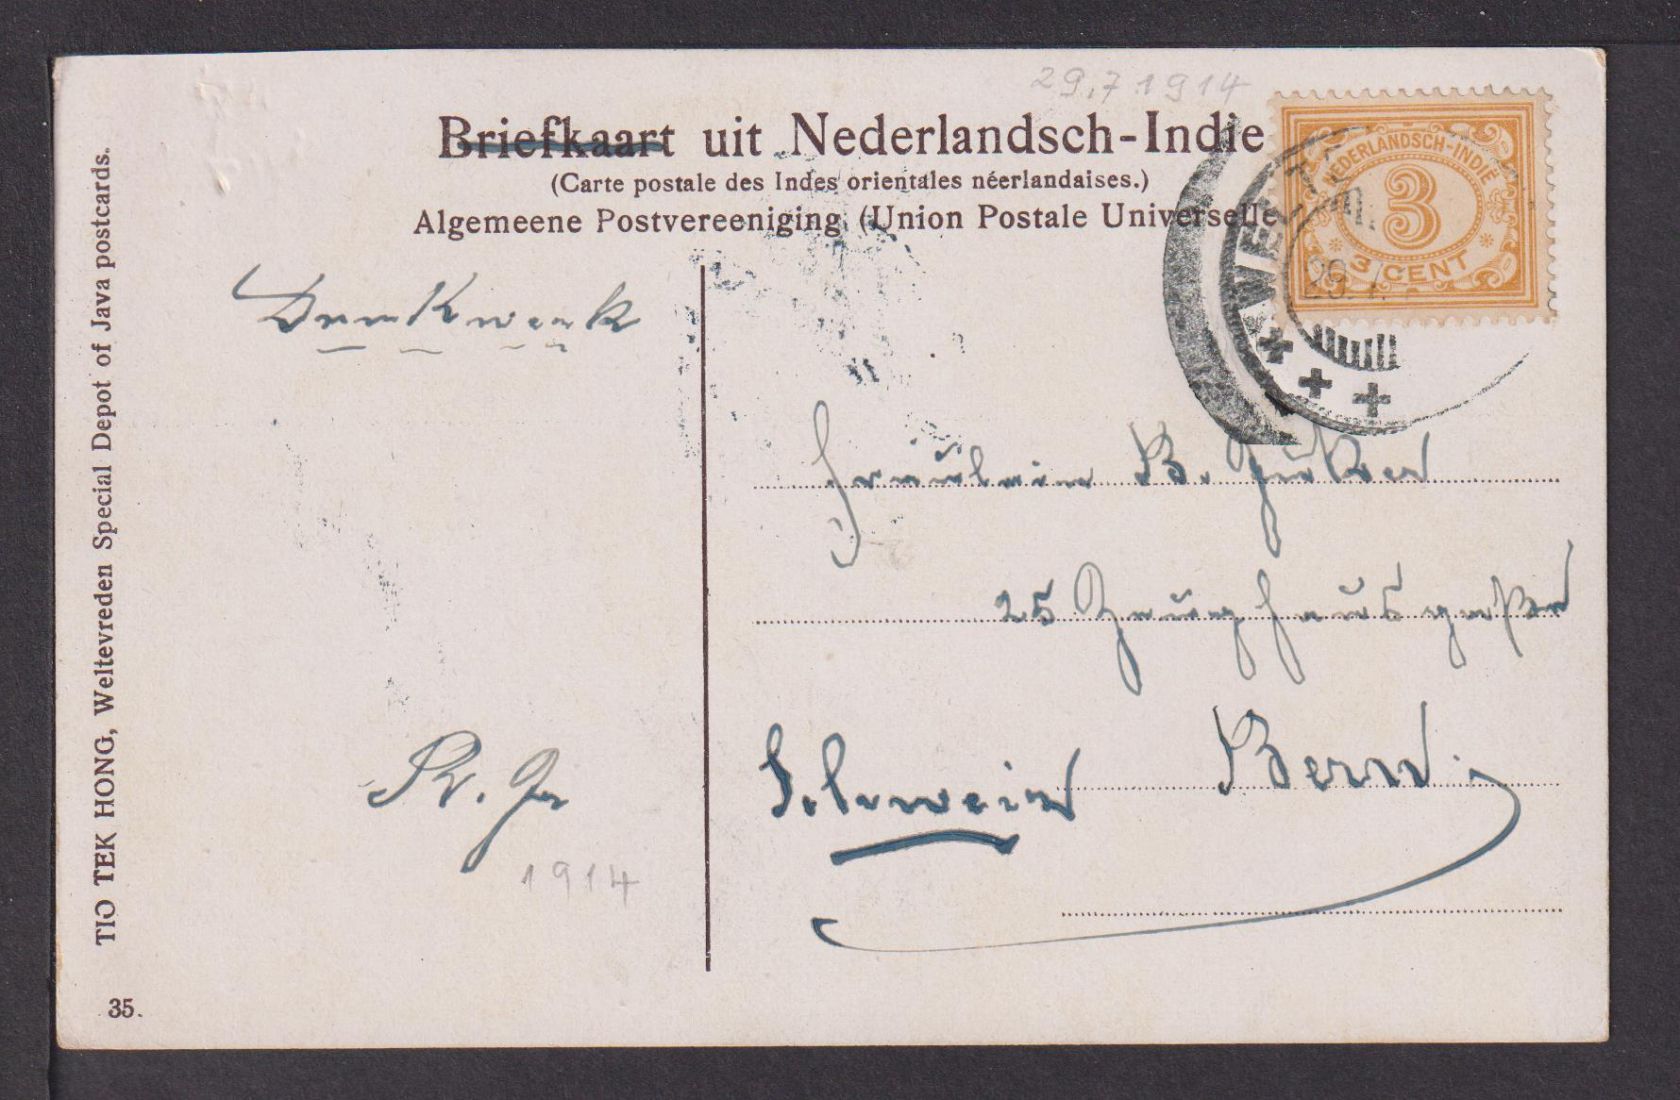 29.7 1914
Briefkaart uit Nederlandsch-Indië
(Carte postale des Indes orientales néerlandaises.)
Algemeene Postvereeniging (Union Postale Universelle
NEDERLANDSCH-INDIË
3
3 CENT
WELT
29.7.
Drukwerk
Fräulein B.
25 Zeughausgasse
Bern.
Schweiz
1914
TIO TEK HONG, Weltevreden Special Depot of Java postcards.
35.